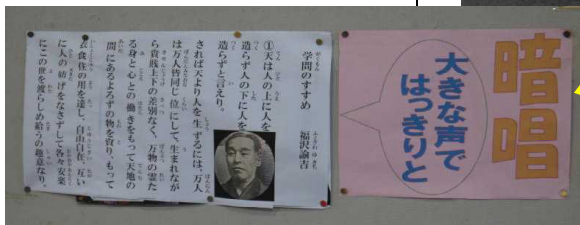 暗唱
大きな声で
はっきりと
学問のすすめ　福沢諭吉
①天は人の上に人を
造らず人の下に人を
造らずと言えり。
されば天より人を生ずるには、万人
は万人皆同じ位にして、生まれなが
ら貴賤上下の差別なく、万物の霊た
る身と心との働きをもって天地の
間にあるよろずの物を資り、もって
衣食住の用を達し、自由自在、互い
に人の妨げをなさずして各々安楽
にこの世を渡らしめ給うの趣意なり。